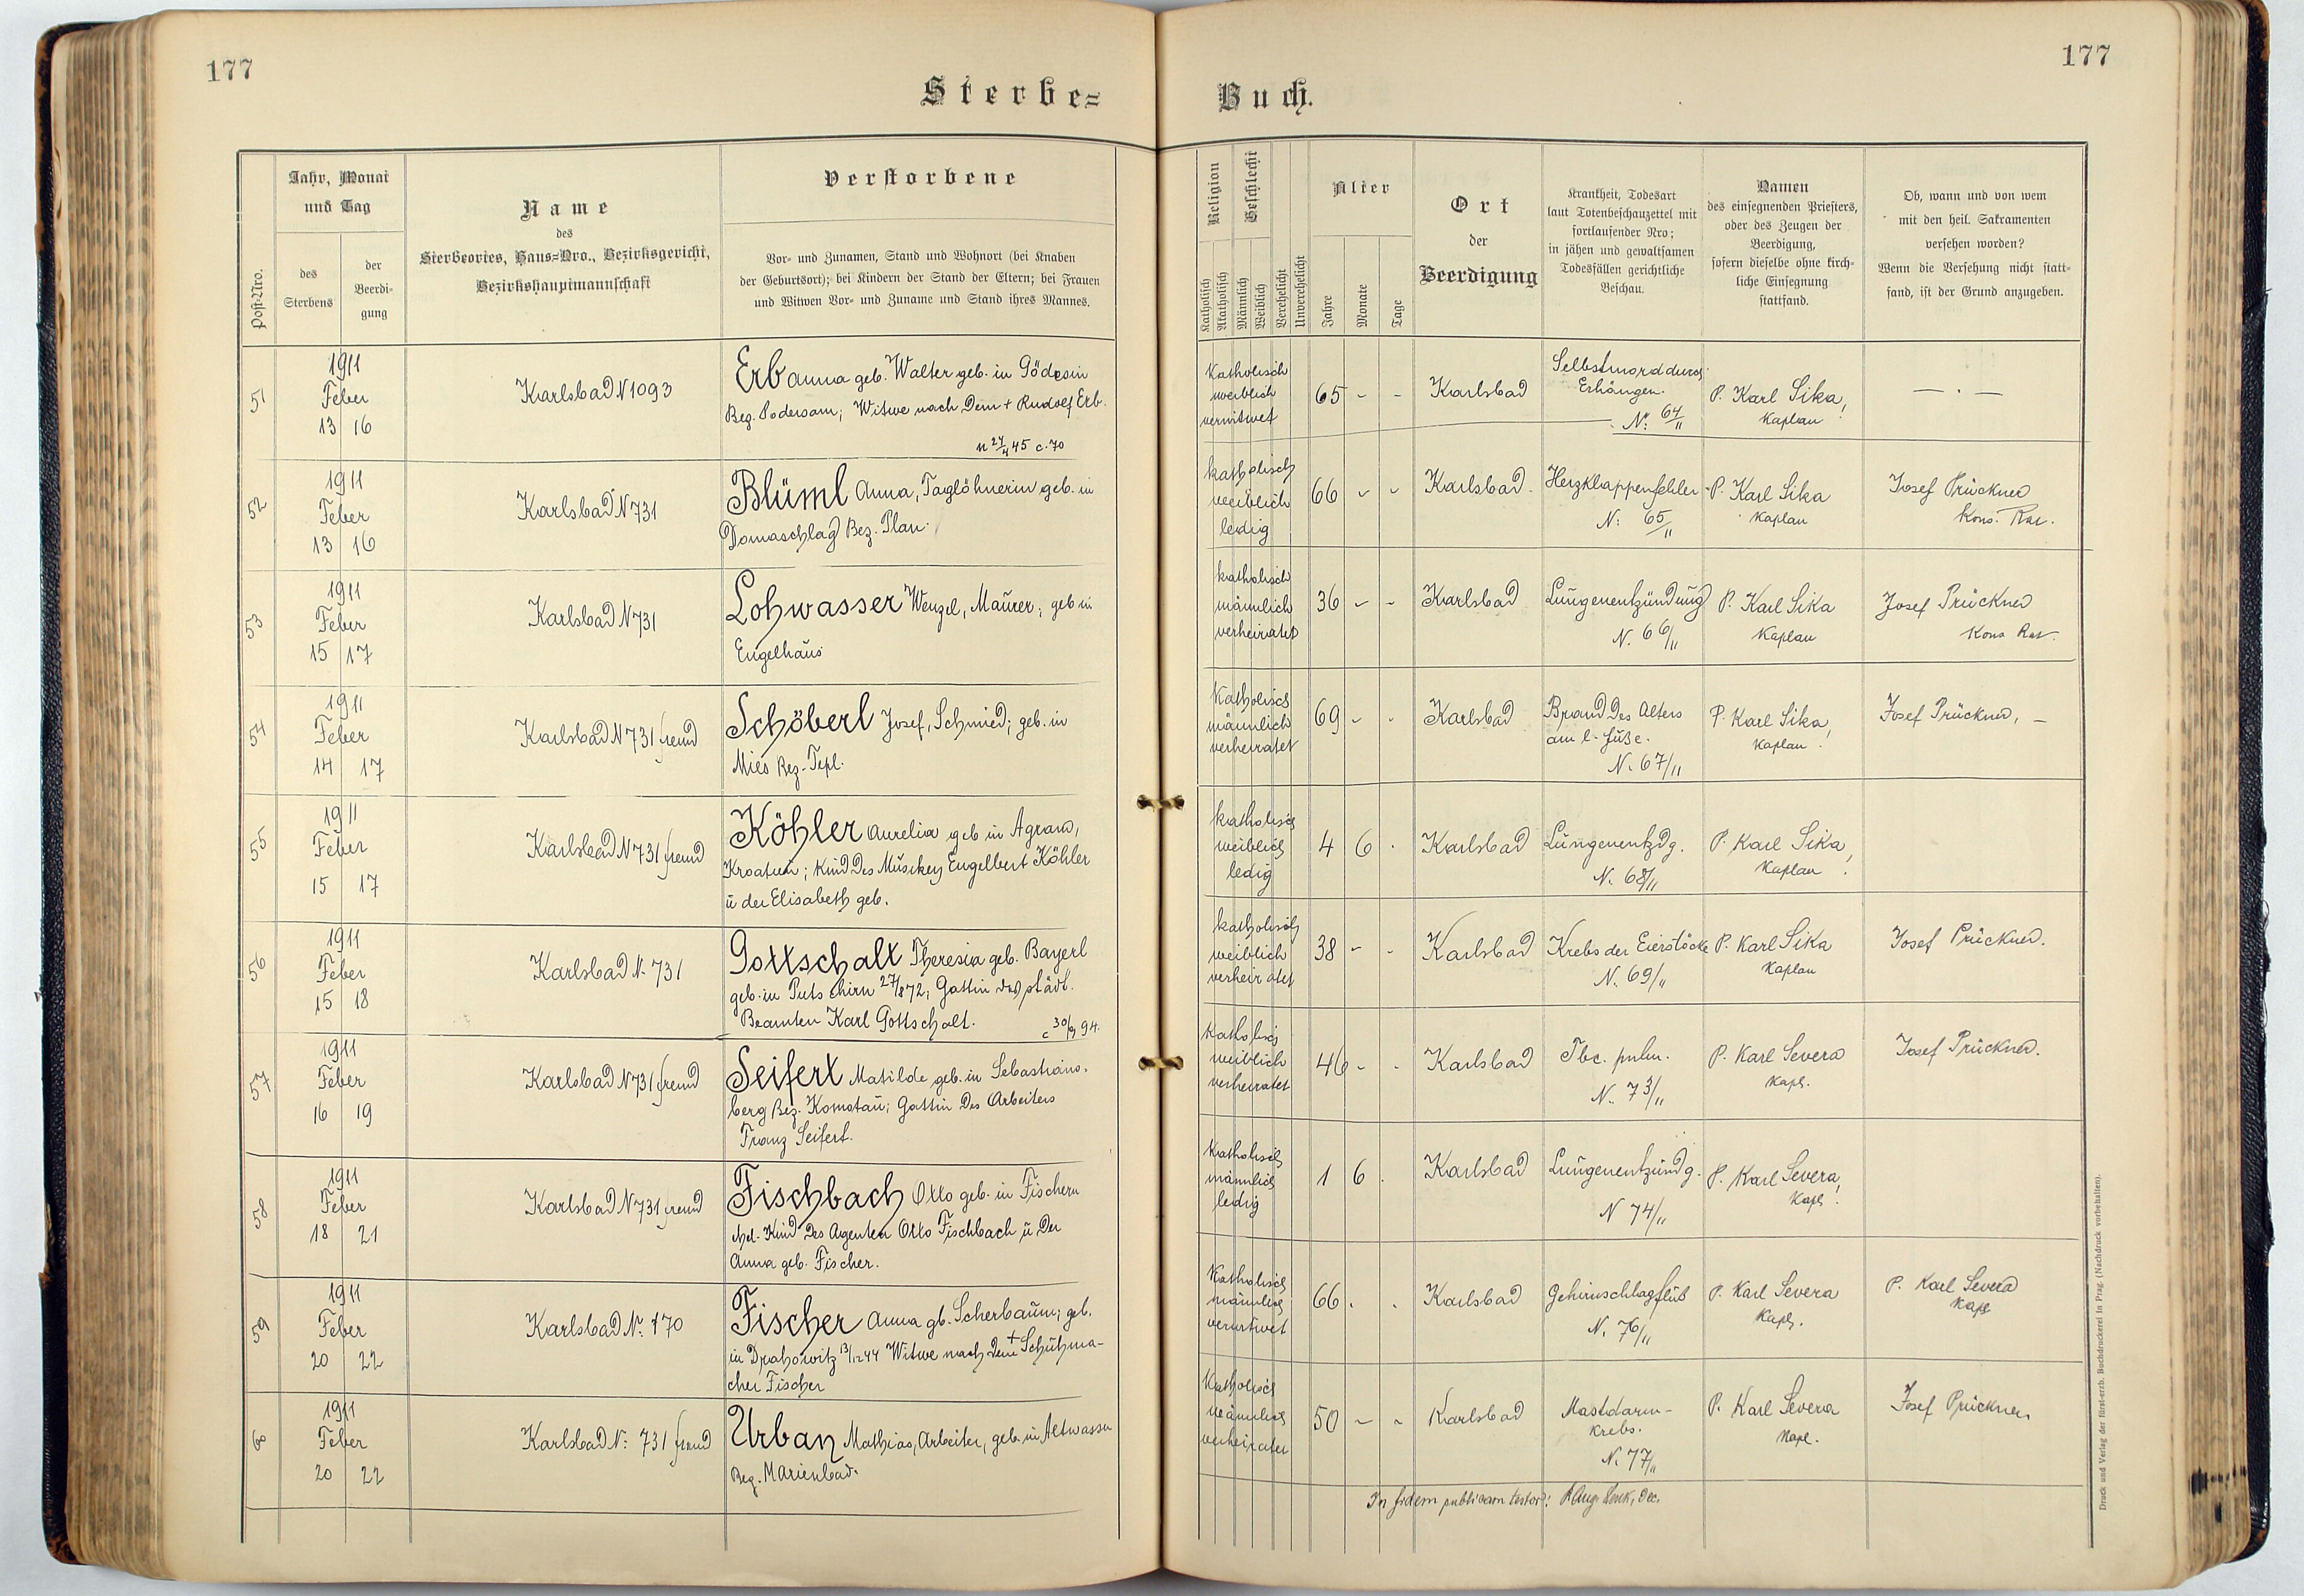 177
177
Sterbe=
Buch.
Post-Nro.
Jahr, Monat
und Tag
des
Sterbens
der
Beerdi-
gung
Name
des
Sterbeortes, Haus=Nro., Bezirksgericht,
Bezirkshauptmannschaft
Verstorbene
Vor- und Zunamen, Stand und Wohnort (bei Knaben
der Geburtsort); bei Kindern der Stand der Eltern; bei Frauen
und Witwen Vor- und Zuname und Stand ihres Mannes.
Religion
Katholisch
Akatholisch
Geschlecht
Männlich
Weiblich
Verehelicht
Unverehelicht
Alter
Jahre
Monate
Tage
Ort
der
Beerdigung
Krankheit, Todesart
laut Totenbeschauzettel mit
fortlaufender Nro;
in jähen und gewaltsamen
Todesfällen gerichtliche
Beschau.
Namen
des einsegnenden Priesters,
oder des Zeugen der
Beerdigung,
sofern dieselbe ohne kirch-
liche Einsegnung
stattfand.
Ob, wann und von wem
mit den heil. Sakramenten
versehen worden?
Wenn die Versehung nicht statt-
fand, ist der Grund anzugeben.
51
1911
Feber
13 16
Karlsbad N 1093
Erb Anna geb. Walter geb. in Gödesin
Bez. Podersam; Witwe nach dem + Rudolf Erb.
n 24/4 45 c. 70
katholisch
weiblich
verwitwet
65 - -
Karlsbad
Selbstmord durch
Erhängen.
N: 64/11
P. Karl Sika,
Kaplan
— . —
52
1911
Feber
13 16
Karlsbad N 731
Blüml Anna, Taglöhnerin geb. in
Domaschlag Bez. Plan.
katholisch
weiblich
ledig
66 - -
Karlsbad.
Herzklappenfehler
N: 65/11
P. Karl Sika
Kaplan
Josef Prückner
Kons. Rat.
53
1911
Feber
15 17
Karlsbad N 731
Lohwasser Wenzel, Maurer; geb in
Engelhaus
katholisch
männlich
verheiratet
36 - -
Karlsbad
Lungenentzündung
N. 66/11
P. Karl Sika
Kaplan
Josef Prückner
Kons Rat.
54
1911
Feber
14 17
Karlsbad N 731 fremd
Schöberl Josef, Schmied; geb. in
Mies Bez. Tepl.
Katholisch
männlich
verheiratet
69 - -
Karlsbad
Brand des Alters
am l. Fuße.
N. 67/11
P. Karl Sika,
Kaplan.
Josef Prückner, —
55
1911
Feber
15 17
Karlsbad N 731 fremd
Köhler Aurelia geb in Agram,
Kroatien; Kind des Musikers Engelbert Köhler
u der Elisabeth geb.
katholisch
weiblich
ledig
4 6 .
Karlsbad
Lungenentzdg.
N. 68/11
P. Karl Sika,
Kaplan.
56
1911
Feber
15 18
Karlsbad N. 731
Gottschalt Theresia geb. Bayerl
geb. in Putschirn 27/8 72; Gattin des städt.
Beamten Karl Gottschalt.
c 30/9 94.
katholisch
weiblich
verheiratet
38 - -
Karlsbad
Krebs der Eierstöcke
N. 69/11
P. Karl Sika
Kaplan
Josef Prückner.
57
1911
Feber
16 19
Karlsbad N 731 fremd
Seifert Matilde geb. in Sebastians-
berg Bez. Komotau; Gattin des Arbeiters
Franz Seifert.
Katholisch
weiblich
verheiratet
46 - .
Karlsbad
Tbc. pulm.
N. 73/11
P. Karl Severa
Kapl.
Josef Prückner.
58
1911
Feber
18 21
Karlsbad N 731 fremd
Fischbach Otto geb. in Fischern
ehel. Kind des Agenten Otto Fischbach u der
Anna geb. Fischer.
Katholisch
männlich
ledig
1 6 .
Karlsbad
Lungenentzündg.
N 74/11
P. Karl Severa,
Kapl.
59
1911
Feber
20 22
Karlsbad N: 170
Fischer Anna gb. Scherbaum; geb.
in Drahowitz 13/12 44 Witwe nach dem + Schuhma-
cher Fischer
Katholisch
männlich
verwitwet
66 . .
Karlsbad
Gehirnschlagfluß
N. 76/11
P. Karl Severa
Kapl.
P. Karl Severa
Kapl
60
1911
Feber
20 22
Karlsbad N: 731 fremd
Urban Mathias, Arbeiter, geb. in Altwasser
Bez. Marienbad.
Katholisch
männlich
verheiratet
50 - -
Karlsbad
Mastdarm-
krebs.
N. 77/11
P. Karl Severa
Kapl.
Josef Prückner
In fidem publicam testor: P. Aug. Lenk, Dec.
Druck und Verlag der fürst-erzb. Buchdruckerei in Prag. (Nachdruck vorbehalten).